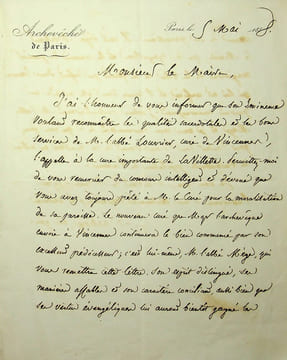 Archevêché
de Paris.
Paris le 5 Mai 18
Monsieur le Maire,
J'ai l'honneur de vous informer que Son Eminence
voulant reconnaître les qualités sacerdotales et les bons
services de M. l'abbé Louvrier, curé de Vincennes,
l'appelle à la cure importante de la Villette. Permettez-moi
de vous remercier du concours intelligent et dévoué que
vous avez toujours prêté à M. le Curé pour la moralisation
de sa paroisse. Le nouveau curé que Mgr l'archevêque
envoie à Vincennes continuera le bien commencé par son
excellent prédécesseur; c'est lui-même, M. l'abbé Miège, qui
vous remettra cette lettre. Son esprit distingué, ses
manières affables et son caractère conciliant aussi bien que
ses vertus évangéliques lui auront bientôt gagné la